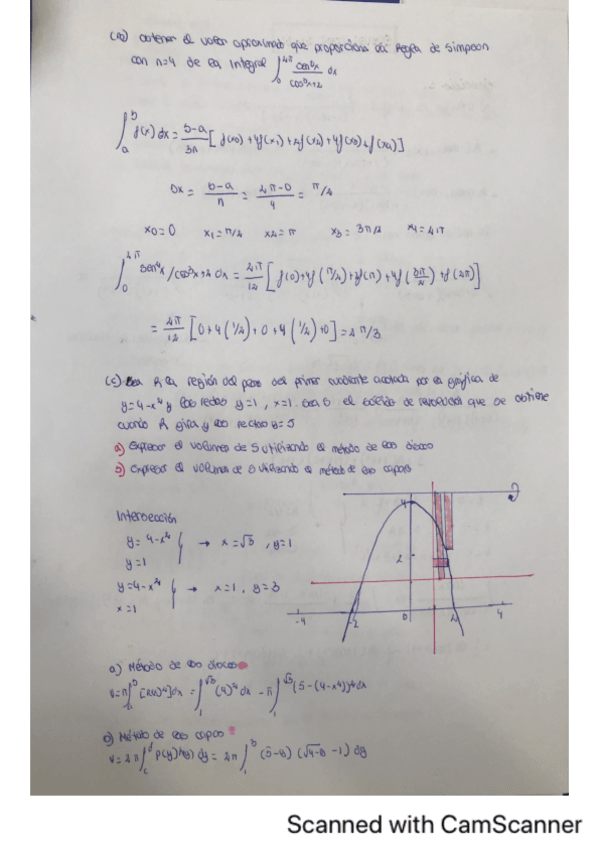 obtener el valor aproximado que proporciona la Regla de Simpson
con n=4 de la integral ∫₀^2π sen²x/cos²x+2 dx
∫ₐᵇ f(x)dx = b-a/3n [f(x0)+4f(x1)+2f(x2)+4f(x3)+f(x4)]
Dx = b-a/n = 2π-0/4 = π/2
x0=0 x1=π/2 x2=π x3=3π/2 x4=2π
= 2π/12 [f(0)+4f(π/2)+2f(π)+4f(3π/2)+f(2π)]
= 2π/12 [0+4(1/2)+0+4(1/2)+0]=2π/3
Sea R la región del plano del primer cuadrante acotada por la gráfica de
y=4-x² y las rectas y=1, x=1. Sea S el sólido de revolución que se obtiene
cuando R gira y las rectas y=5
a) Expresar el volumen de S utilizando el método de los discos
b) Expresar el volumen de S utilizando el método de las capas
Intersección
y=4-x²
y=1 → x=√3, y=1
y=4-x²
x=1 → x=1, y=3
4
2
-4 -2 0 2 4
a) Método de los discos
b) Método de las capas
Scanned with CamScanner